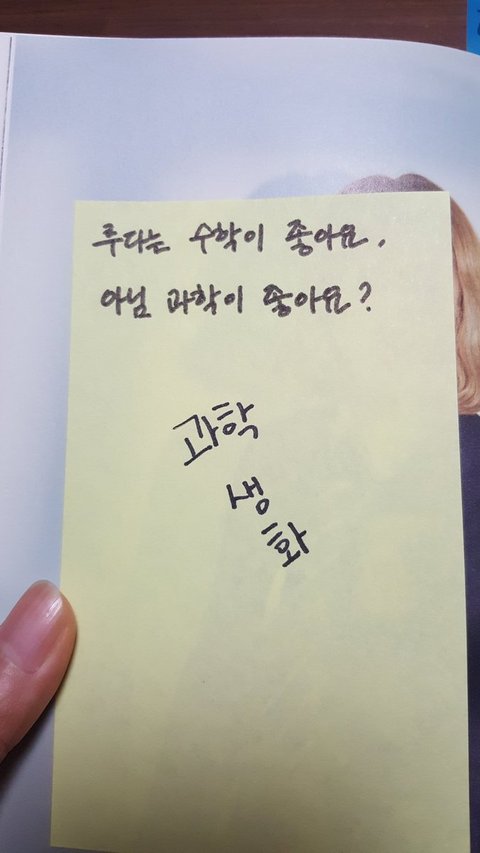 루다는 수학이 좋아요.
아님 과학이 좋아요?
과학
생
화